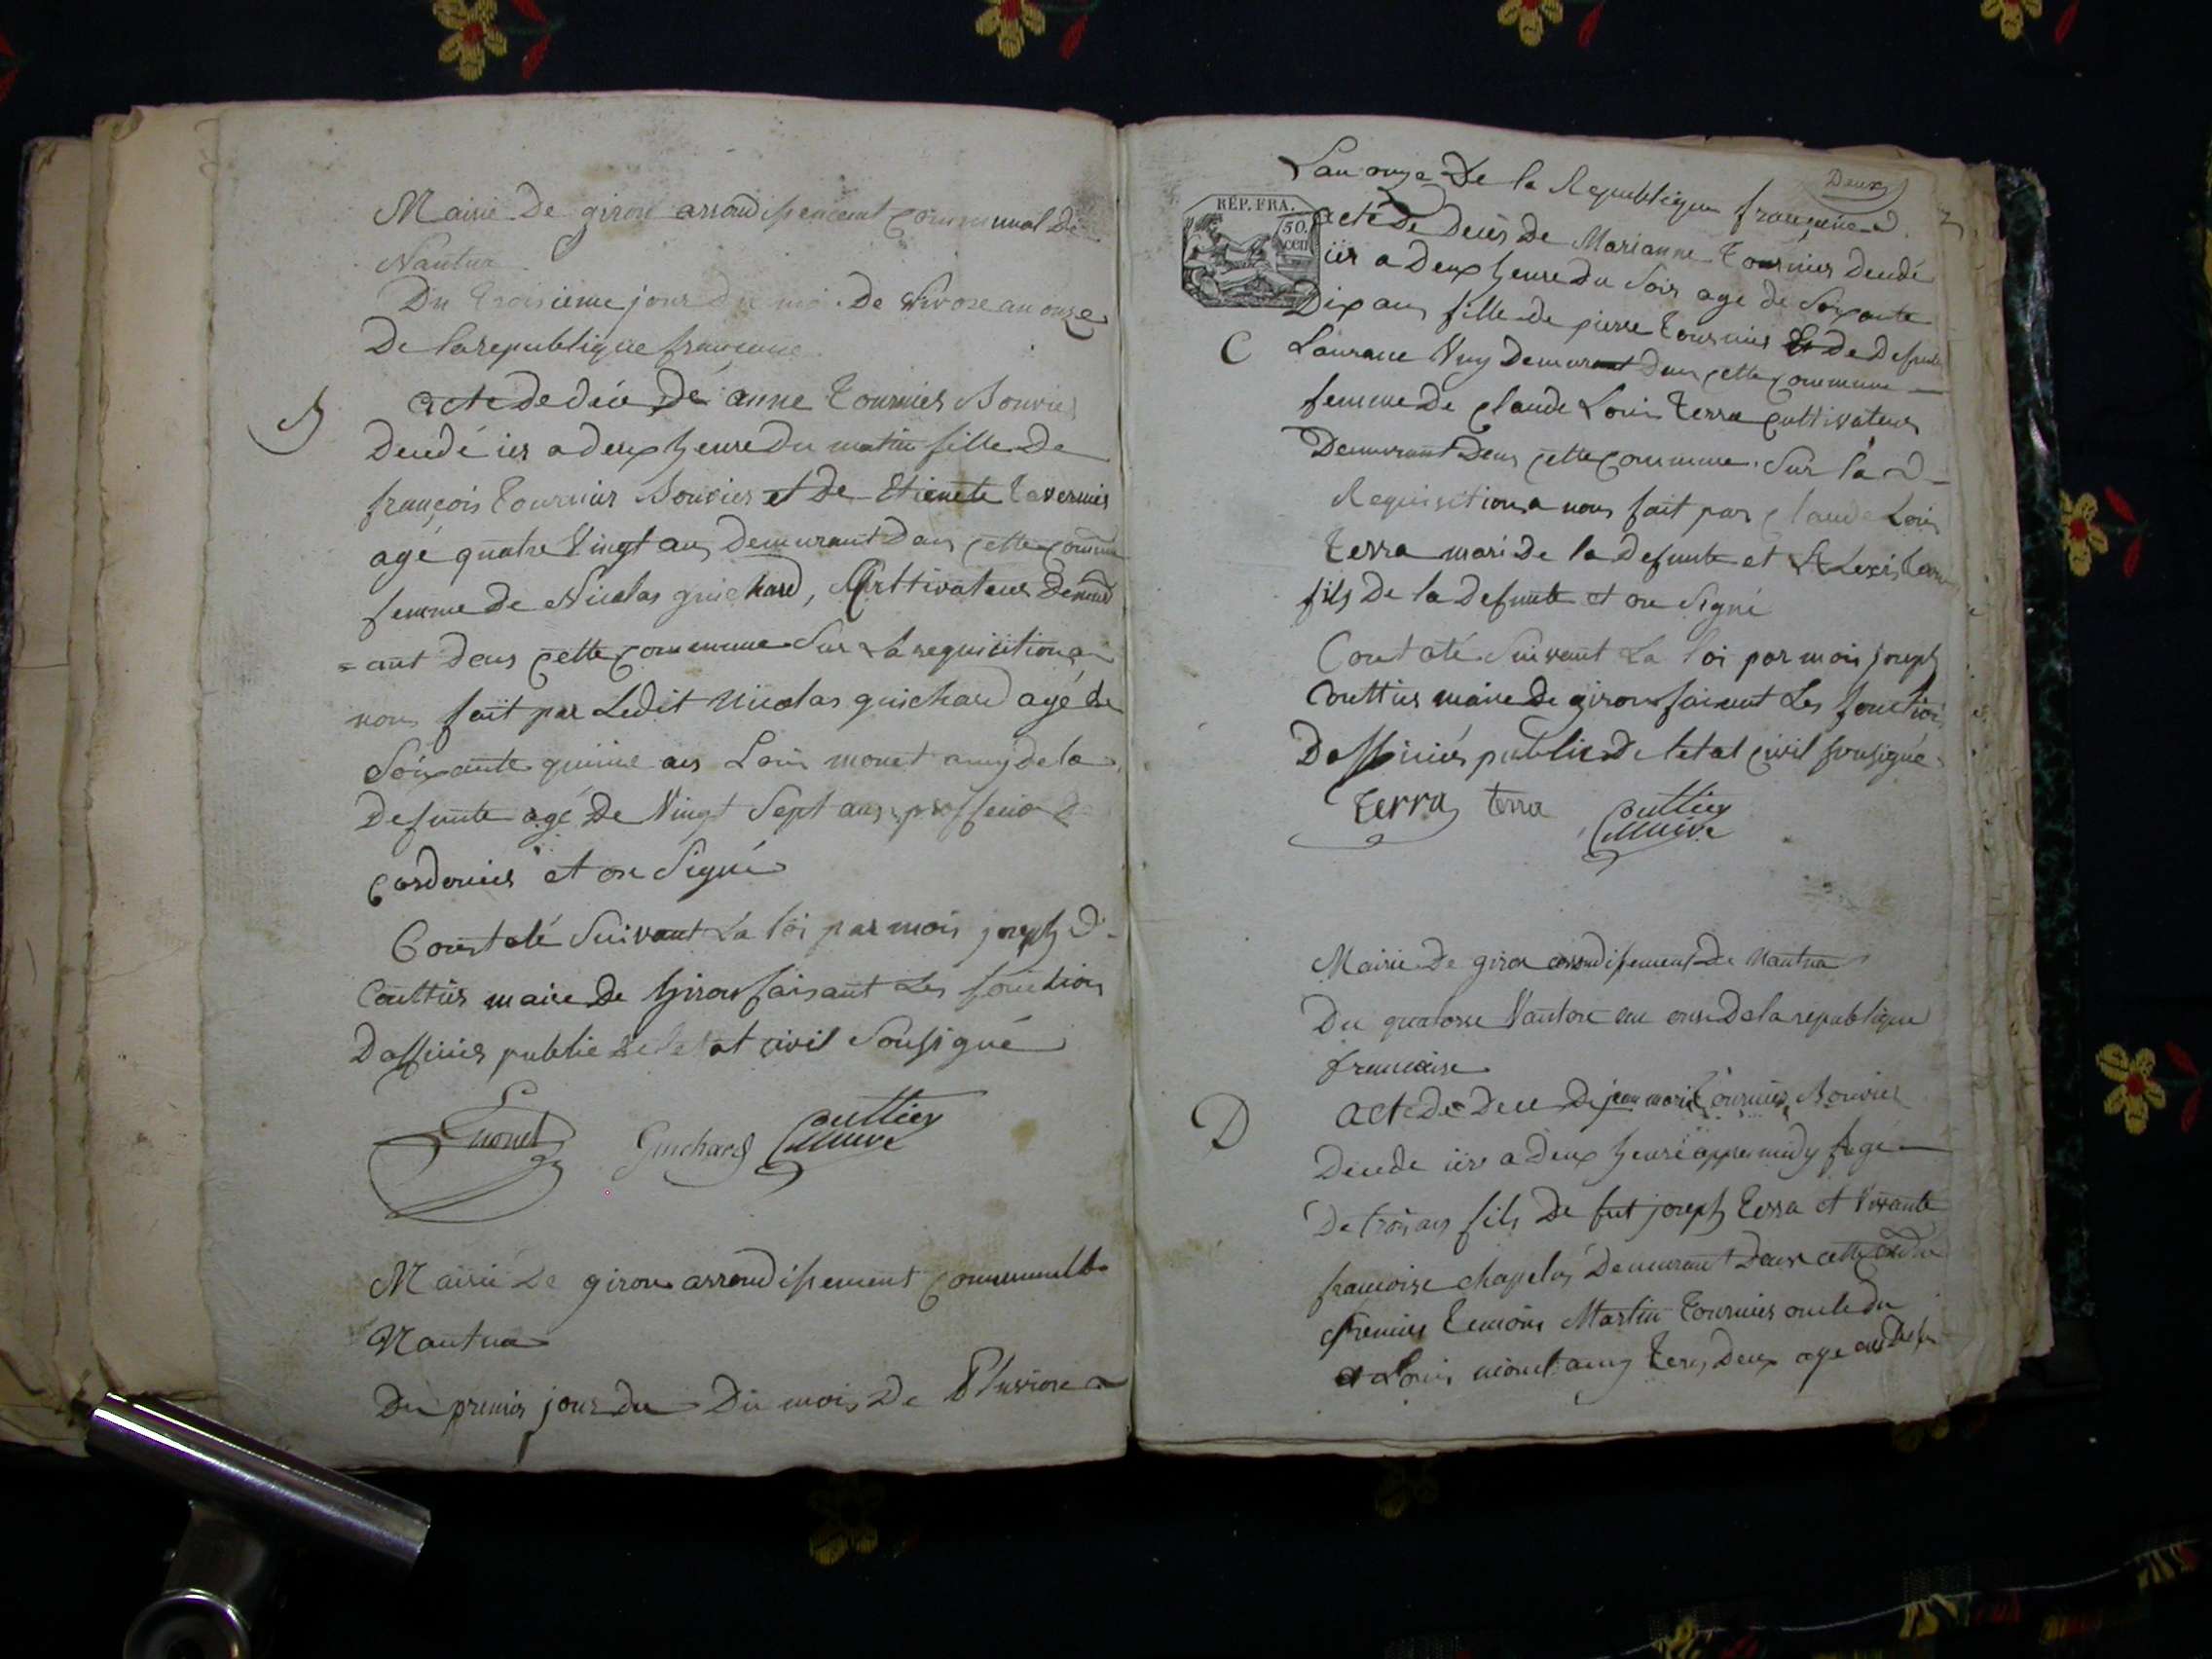 Mairie De giron arrondissement Communal De
Nantua
Du troisieme jour Du moi De Nivose an onze
De la republique francaise
B
acte de décé De anne Tournier Bouvier
Decedé ier a deux heure Du matin fille De
françois Tournier Bouvier et De Etienete tavernier
agé quatre Vingt ans Demurant Dans cette commune
femme De Nicolas guichard, Culttivateur Demur
=ant dans cette commune Sur La requisition a
nous fait par Ledit Nicolas guichard agé de
Soixante quinse ans Louis monet amy de la
Defunte agé De Vingt Sept ans proffesion De
Cordonier et on Signé
Constaté Suivant La loi par moi joseph
Couttier maire De Giron faisant Les fonction
Dafficier public De letat civil Sousigné
Lmonet Guichard Couttier
maire
Mairie De giron arrondissement Communal De
Nantua
Du premier jour du Du mois De Pluviose
Deux
2
Lan onze De la Republique françoise
RÉP. FRA.
50.
cen
acte De Deces De Marianne Tournier Decedé
ier a Deux heure Du Soir age de Soixante
Dix ans fille De pierre Tournier Et De Defunte
C
Laurance Vuy Demurant Dans cette commune
femme De Claude Louis Terra cultivateur
Demurant Dans cette commune. Sur la
Requisition a nous fait par Claude Louis
Terra mari De la Defunte et Alexis terra
fils De la Defunte et on Signé
Contaté Suivant La loi par moi joseph
Couttier maire De giron faisant Les fonction
Dofficier public De letat civil sousigné
terra terra Couttier
maire
Mairie De giron arrondisement De Nantua
Du quatorse Vantose an onse De la republique
francoise
D
acte De Dece De jean marie Tournier Bouvier
Decede ier a Deux heure appremidy agé
De trois ans fils De fut joseph Terra et Vivante
francoise chapelus Demurant Dans cette
premier temoin Martin Tournier oncle du
et Louis monet amy Deux age